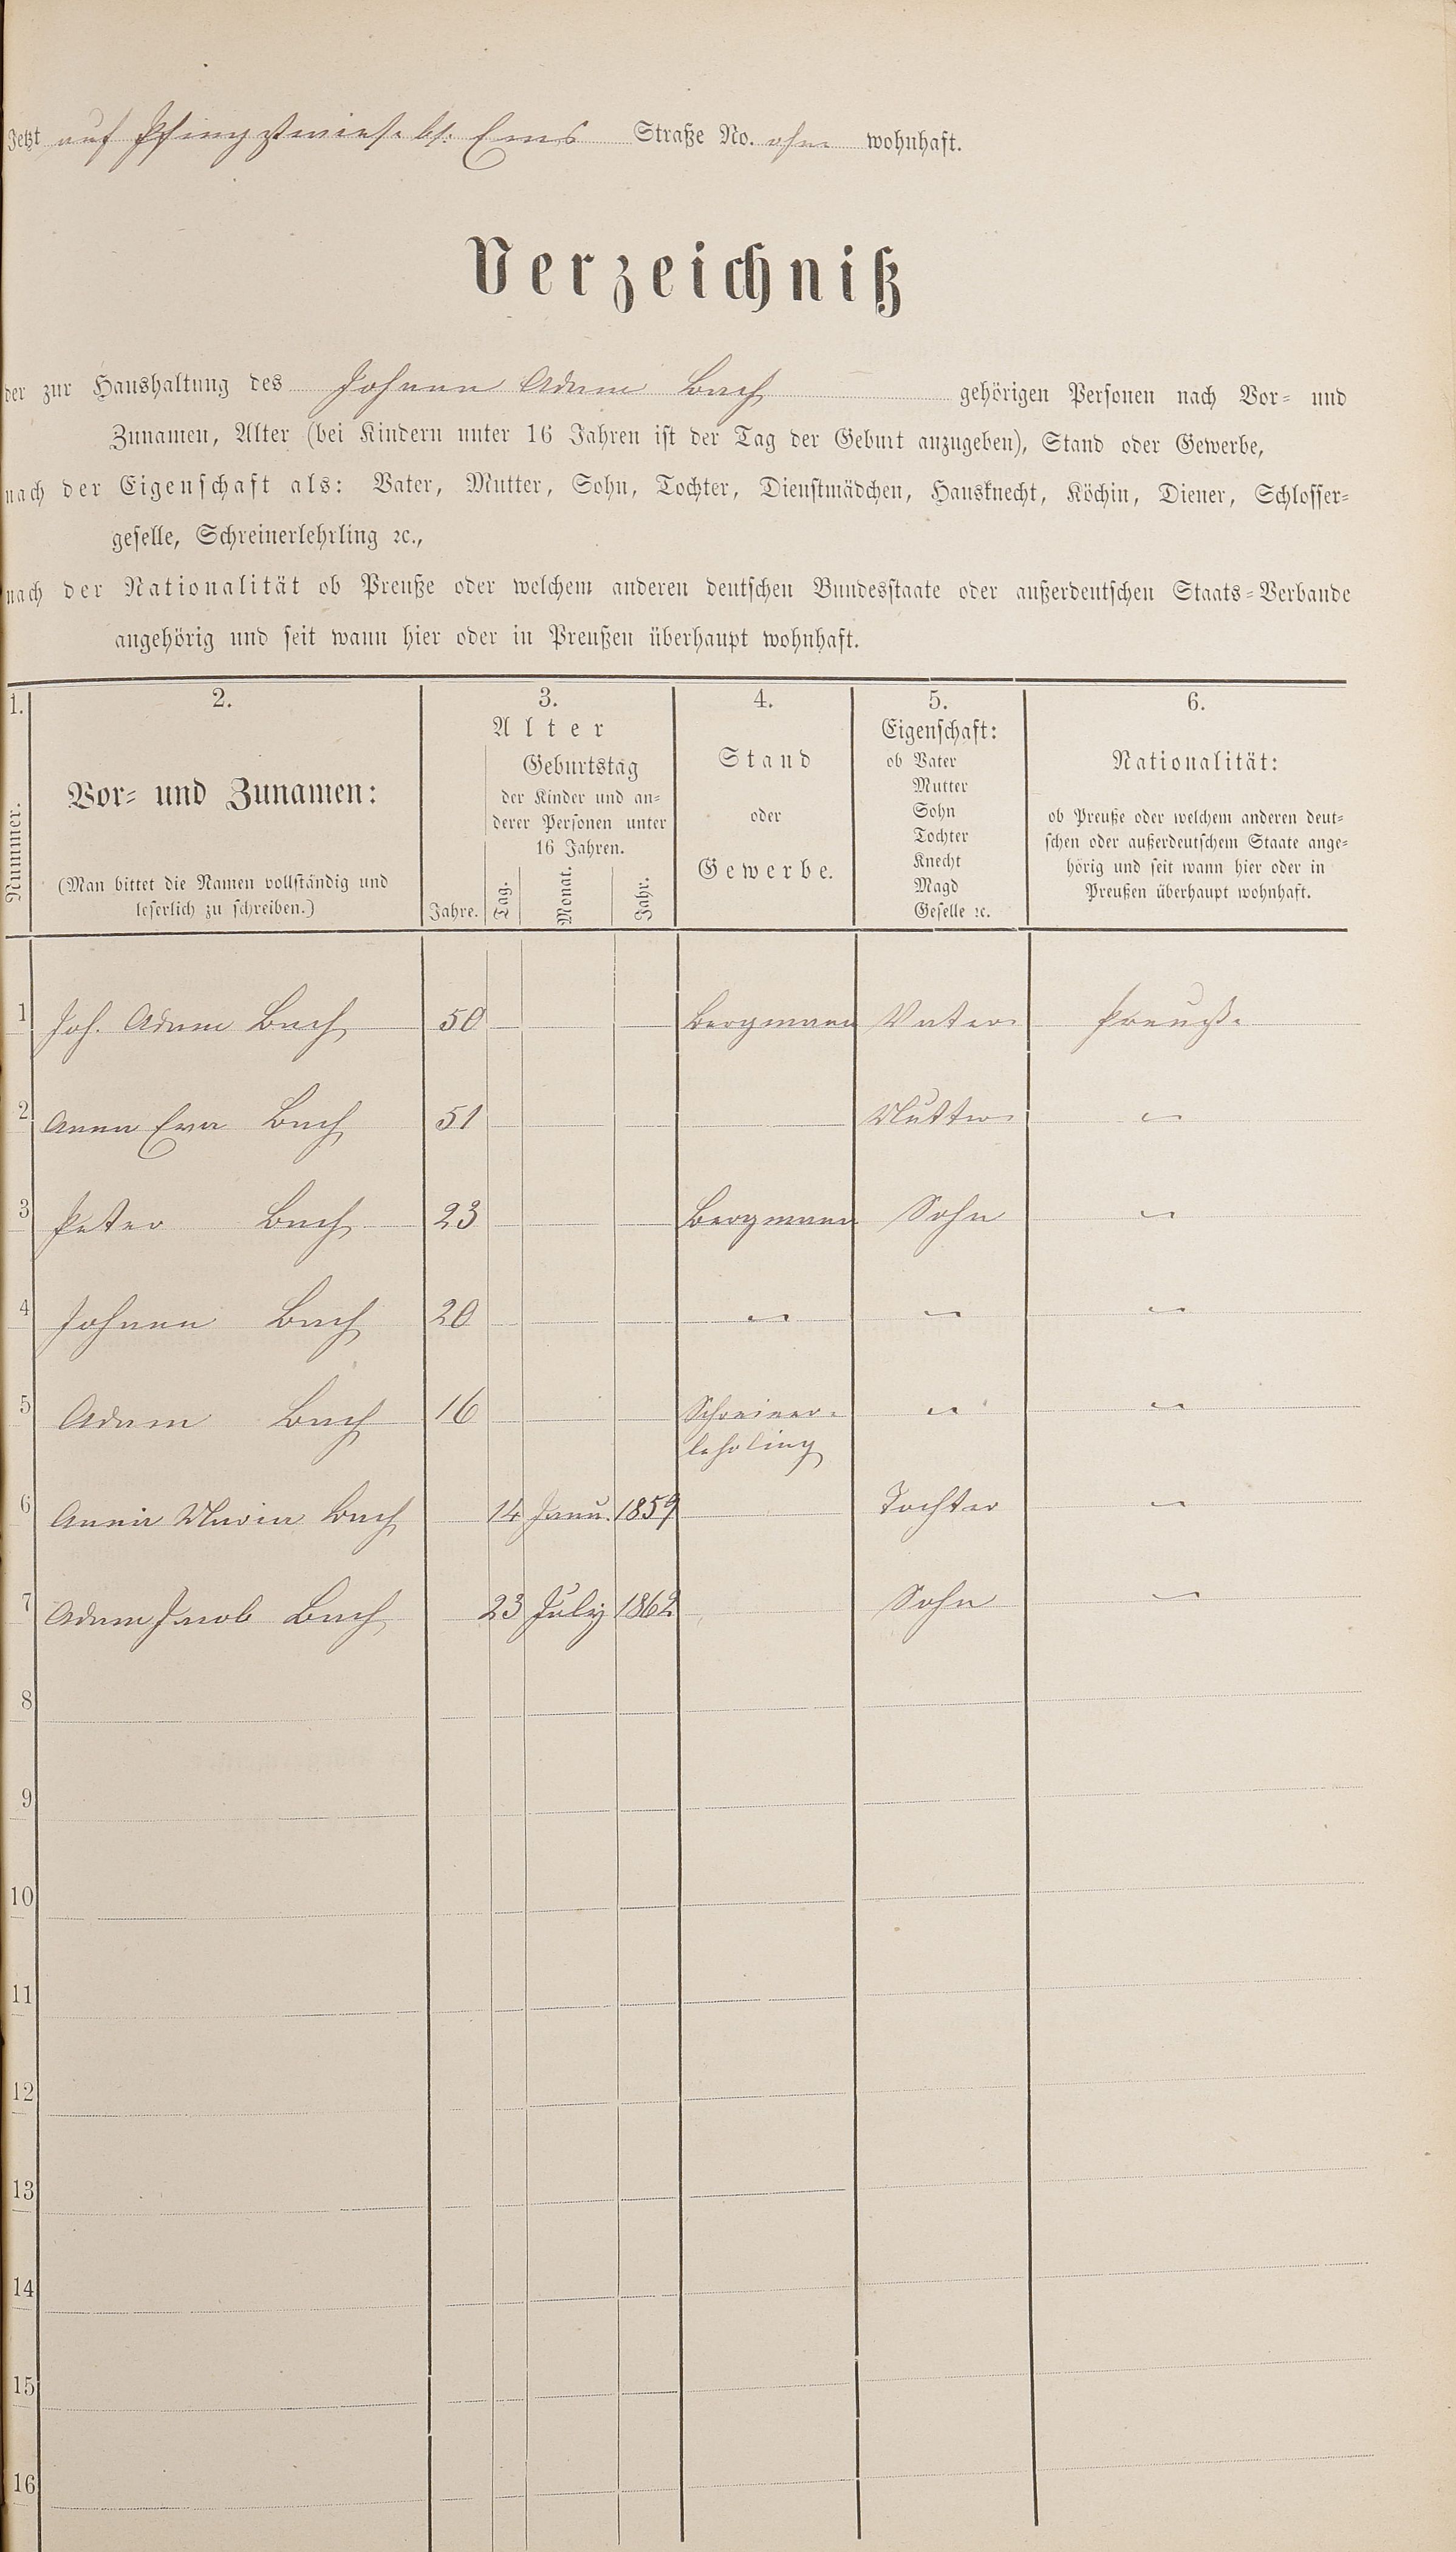 Jetzt auf Pfingstwiese bei Ems Straße No. ohne wohnhaft.
Verzeichniß
der zur Haushaltung des Johann Adam Bach gehörigen Personen nach Vor- und
Zunamen, Alter (bei Kindern unter 16 Jahren ist der Tag der Geburt anzugeben), Stand oder Gewerbe,
nach der Eigenschaft als: Vater, Mutter, Sohn, Tochter, Dienstmädchen, Hausknecht, Köchin, Diener, Schlosser-
geselle, Schreinerlehrling ꝛc.,
nach der Nationalität ob Preuße oder welchem anderen deutschen Bundesstaate oder außerdeutschen Staats-Verbande
angehörig und seit wann hier oder in Preußen überhaupt wohnhaft.
1. 2. 3. 4. 5. 6.
Nummer.
Vor- und Zunamen:
(Man bittet die Namen vollständig und
leserlich zu schreiben.)
Alter
Jahre.
Geburtstag
der Kinder und an-
derer Personen unter
16 Jahren.
Tag. Monat. Jahr.
Stand
oder
Gewerbe.
Eigenschaft:
ob Vater
Mutter
Sohn
Tochter
Knecht
Magd
Geselle ꝛc.
Nationalität:
ob Preuße oder welchem anderen deut-
schen oder außerdeutschem Staate ange-
hörig und seit wann hier oder in
Preußen überhaupt wohnhaft.
1 Joh. Adam Bach 50 Bergmann Vater Preuße
2 Anna Eva Bach 51 Mutter "
3 Peter Bach 23 Bergmann Sohn "
4 Johann Bach 20 " " "
5 Adam Bach 16 Schreiner- " "
lehrling
6 Anna Maria Bach 14 Janu. 1859 Tochter "
7 Adam Jacob Bach 23 July 1862 Sohn "
8
9
10
11
12
13
14
15
16